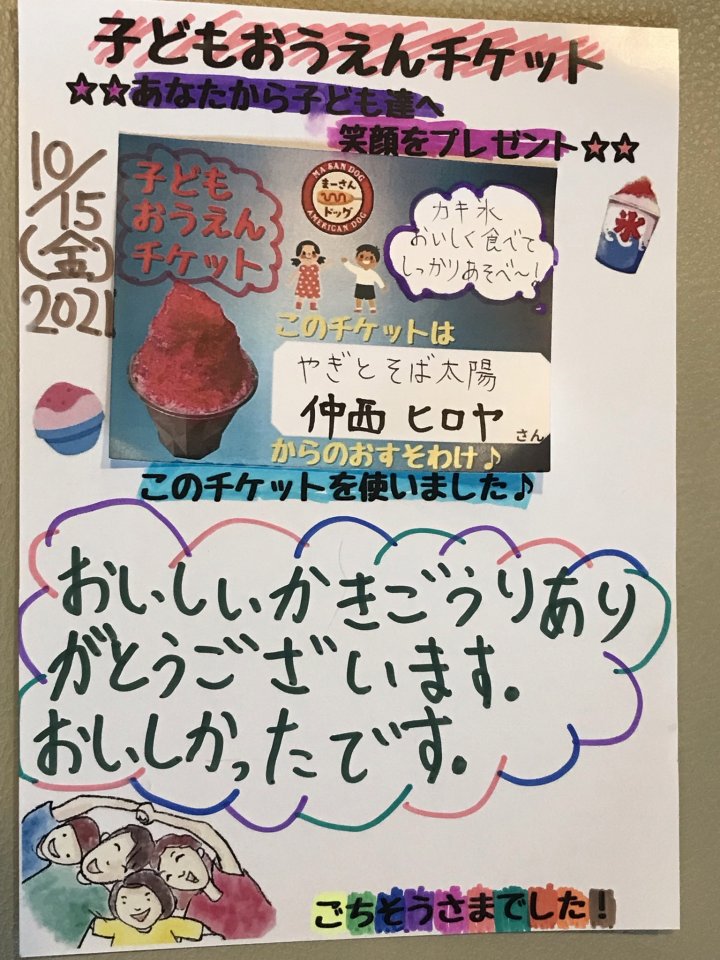 子どもおうえんチケット
☆☆あなたから子ども達へ
笑顔をプレゼント☆☆
10/15
(金)
2021
子ども
おうえん
チケット
MA SAN DOG
まーさん
ドッグ
AMERICAN DOG
カキ氷
おいしく食べて
しっかりあそべ〜!
このチケットは
やぎとそば太陽
仲西 ヒロヤ
さん
からのおすそわけ♪
氷
このチケットを使いました♪
おいしいかきごうりあり
がとうございます。
おいしかったです。
ごちそうさまでした!